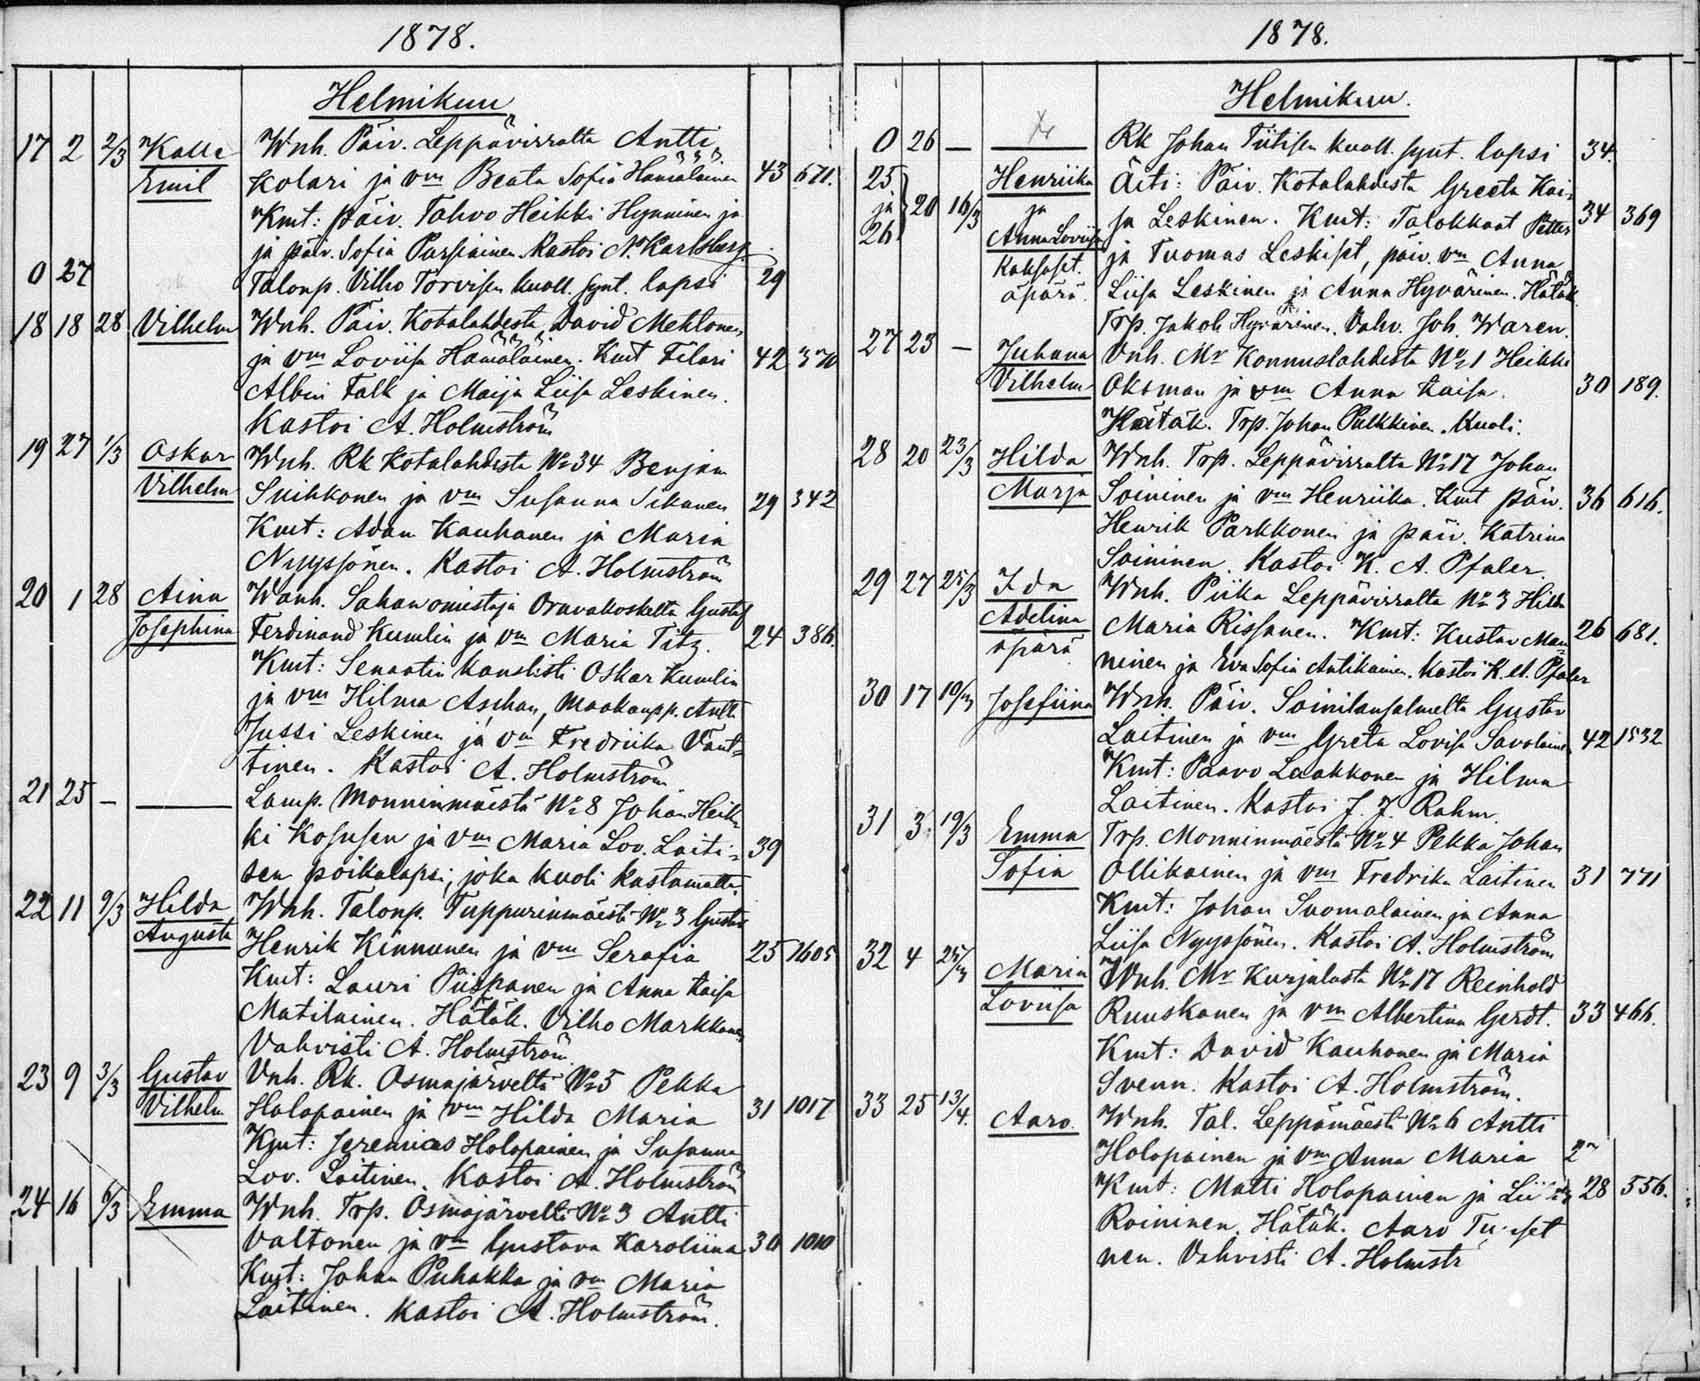 1878.
Helmikuu
17 2 2/3 Kalle Wnh. Päiv. Leppävirralta Antti
Emil Kolari ja vm Beata Sofia Hämäläinen 43 671.
Kmt: päiv. Tahvo Heikki Hynninen ja
ja päiv. Sofia Parsiainen. Kastoi N. Karlsberg.
0 27 Talonp. Vilho Torvisen kuoll. synt. lapsi 29
18 18 28 Vilhelm Wnh. Päiv. Kotalahdesta David Mehtonen
ja vm Loviisa Hämäläinen. Kmt Filari 42 370
Albin Falk ja Maija Liisa Leskinen.
Kastoi A. Holmström
19 27 1/3 Oskar Wnh. Rk Kotalahdesta No 34 Benjam
Vilhelm Suihkonen ja vm Susanna Sikanen 29 342
Kmt: Adam Kauhanen ja Maria
Nyyssönen. Kastoi A. Holmström
20 1 28 Aina Wanh. Sahan omistaja Oravakoskelta Gustaf
Josephina Ferdinand Kumlin ja vm Maria Titz. 24 386.
Kmt: Senaatin kanslisti Oskar Kumlin
ja vm Hilma Aschan, Maakaupp. Antti
Jussi Leskinen ja vm Fredriika Vänt-
tinen. Kastoi A. Holmström
21 25 — — Lamp. Monninmäestä No 8 Johan Heik-
ki Kosusen ja vm Maria Lov. Laiti- 39
sen poikalapsi, joka kuoli kastamatta.
22 11 9/3 Hilda Wnh. Talonp. Tuppurinmäestä No 3 Gustav
Augusta Henrik Kinnunen ja vm Serafia 25 1605
Kmt: Lauri Piispanen ja Anna Kaisa
Matilainen. Hätäk. Vilho Markkanen
Vahvisti A. Holmström.
23 9 3/3 Gustav Vnh. Rk. Osmajärveltä No 5 Pekka
Vilhelm Holopainen ja vm Hilda Maria 31 1017
Kmt: Jeremias Holopainen ja Susanna
Lov. Laitinen. Kastoi A. Holmström
24 16 6/3 Emma Wnh. Trp. Osmajärveltä No 3 Antti
Valtonen ja vm Gustava Karoliina 30 1010
Kmt: Johan Puhakka ja vm Maria
Laitinen. Kastoi A. Holmström.
1878.
Helmikuu.
0 26 — — Rk Johan Tiitisen kuoll. synt. lapsi 34.
25 Henriika Äiti: Päiv. Kotalahdesta Greeta Kai-
ja 20 16/3 ja sa Leskinen. Kmt: Talokkaat Petter 34 369
26 Anna Loviisa ja Tuomas Leskiset, päiv. vm Anna
Kaksoset. Liisa Leskinen ja Anna Hyvärinen. Hätäk
äpärä. Trp. Jakob Hyvärinen. Vahv. Joh. Waren.
27 23 — Juhana Vnh. Mr Konnuslahdesta No 1 Heikki
Vilhelm Oksman ja vm Anna Kaisa. 30 189.
Hätäk. Trp. Johan Pulkkinen. Kuoli.
28 20 23/3 Hilda Wnh. Trp. Leppävirralta No 17 Johan
Marja Soininen ja vm Henriika. Kmt päiv. 36 616.
Henrik Parkkonen ja päiv. Katrina
Soininen. Kastoi K. A. Pfaler.
29 27 25/3 Ida Wnh. Piika Leppävirralta No 3 Hilda
Adelina Maria Rissanen. Kmt: Kustav Man- 26 681.
äpärä ninen ja Eva Sofia Antikainen. Kastoi K. A. Pfaler
30 17 19/3 Josefiina Wnh. Päiv. Soinilansalmelta Gustav
Laitinen ja vm Greta Lovisa Savolainen 42 1532
Kmt: Paavo Laakkonen ja Hilma
Laitinen. Kastoi J. J. Rahm.
31 3 19/3 Emma Trp. Monninmäestä No 4 Pekka Johan
Sofia Ollikainen ja vm Fredrika Laitinen 31 771
Kmt: Johan Suomalainen ja Anna
Liisa Nyyssönen. Kastoi A. Holmström
32 4 25/3 Maria Wnh. Mr Kurjalasta No 17 Reinhold
Loviisa Ruuskanen ja vm Albertina Gerdt. 33 466.
Kmt: David Kauhanen ja Maria
Svenn. Kastoi A. Holmström.
33 25 13/4. Aaro. Wnh. Tal. Leppämäestä No 6 Antti
Holopainen ja vm Anna Maria
Kmt: Matti Holopainen ja 28 556.
Roininen. Hätäk. Aaro
nen. Vahvisti A. Holmstr